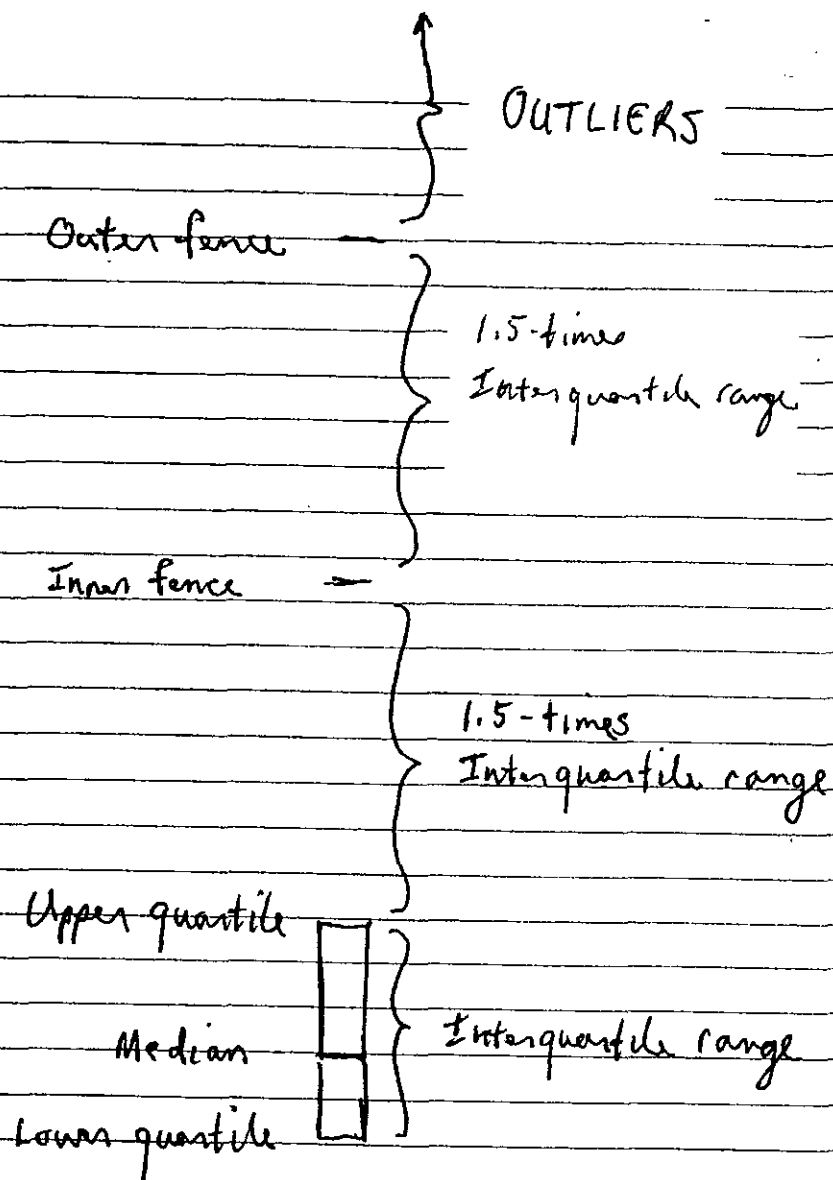 OUTLIERS
Outer fence
1.5-times
Interquartile range
Inner fence
1.5-times
Interquartile range
Upper quartile
Median
Interquartile range
Lower quartile